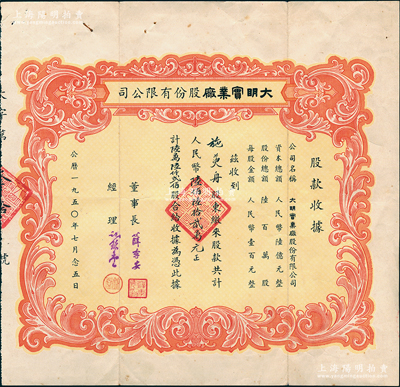 大明實業廠股份有限公司
股款收據
公司名稱 大明實業廠股份有限公司
資本總額 人民幣陸億元整
股份總額 陸百萬股
每股金額 人民幣壹百元整
茲收到
施奐舟股東繳來股款共計
人民幣陸佰陸拾貳萬元正
計陸萬陸仟貳佰股合給收據為憑此據
董事長
經理
公曆一九五〇年七月念五日
號
上海陽明拍賣